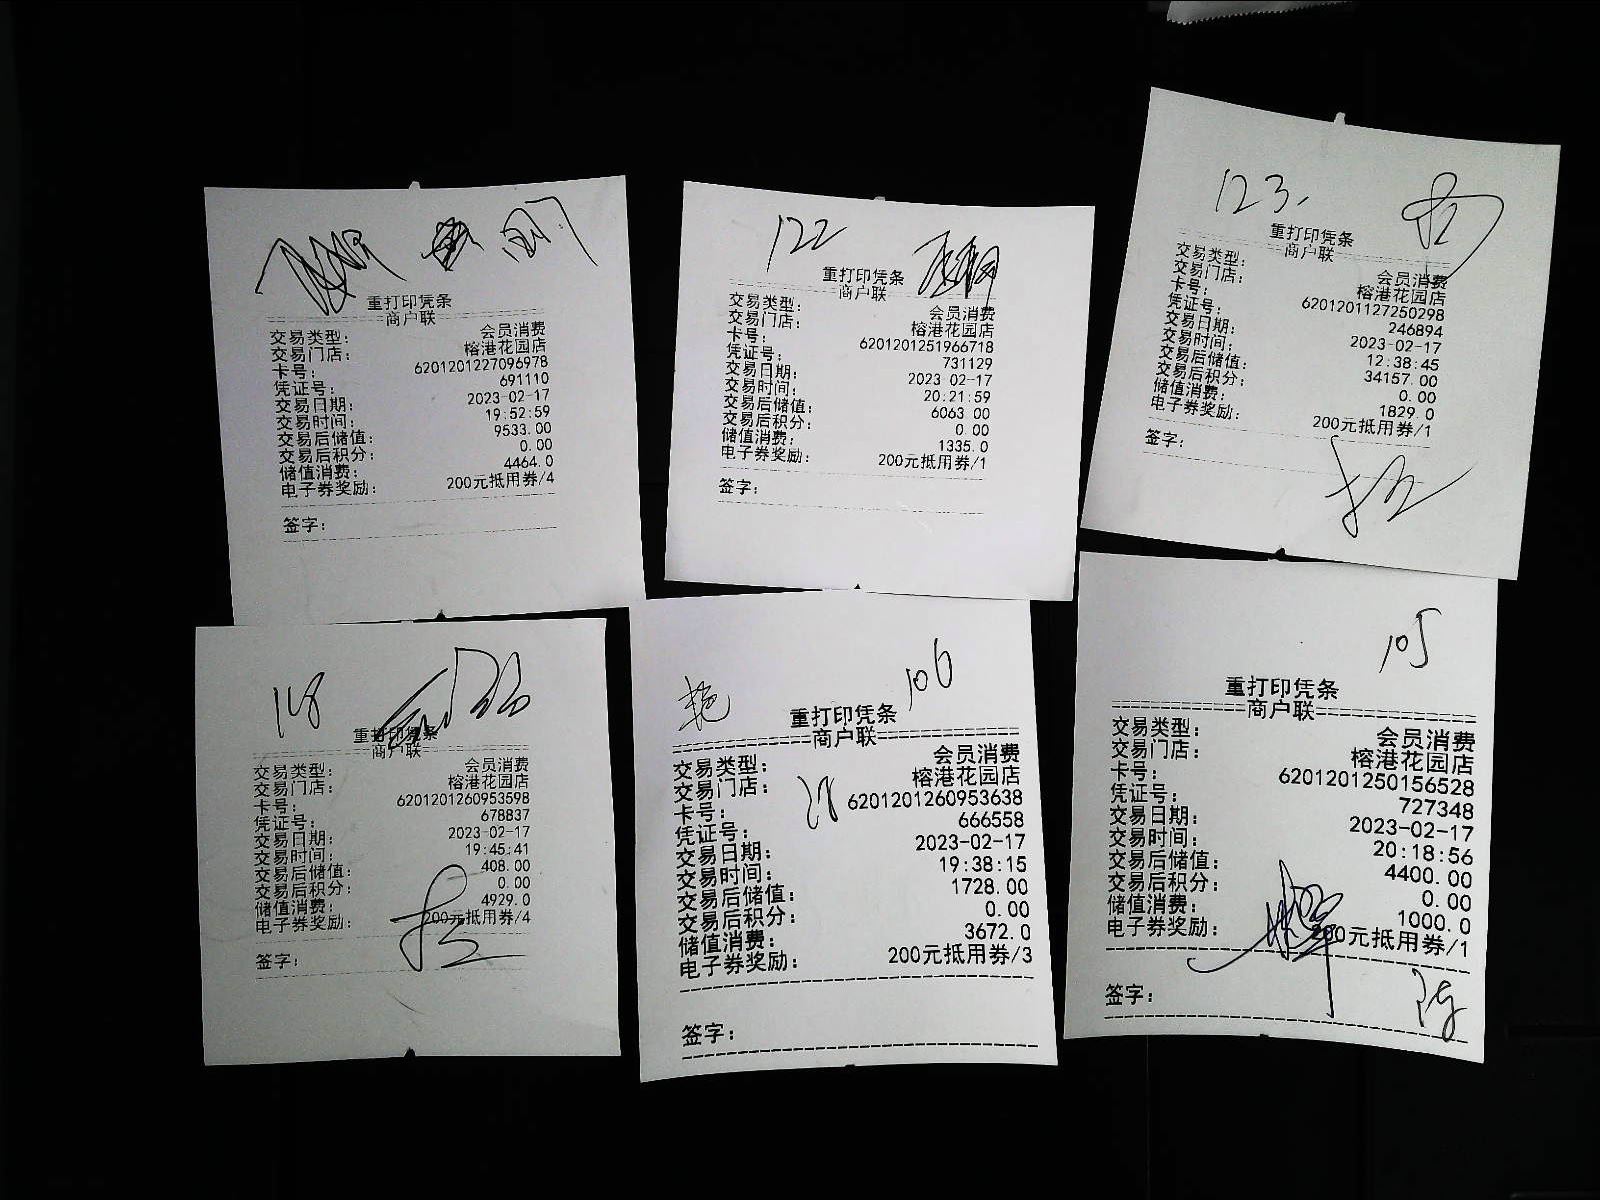 重打印凭条
商户联
交易类型： 会员消费
交易门店： 榕港花园店
卡号： 6201201227096978
凭证号： 691110
交易日期： 2023-02-17
交易时间： 19:52:59
交易后储值： 9533.00
交易后积分： 0.00
储值消费： 4464.0
电子券奖励： 200元抵用券/4
签字：
122
重打印凭条
商户联
交易类型： 会员消费
交易门店： 榕港花园店
卡号： 6201201251966718
凭证号： 731129
交易日期： 2023-02-17
交易时间： 20:21:59
交易后储值： 6063.00
交易后积分： 0.00
储值消费： 1335.0
电子券奖励： 200元抵用券/1
签字：
123.
重打印凭条
商户联
交易类型： 会员消费
交易门店： 榕港花园店
卡号： 6201201127250298
凭证号： 246894
交易日期： 2023-02-17
交易时间： 12:38:45
交易后储值： 34157.00
交易后积分： 0.00
储值消费： 1829.0
电子券奖励： 200元抵用券/1
签字：
118
重打印凭条
商户联
交易类型： 会员消费
交易门店： 榕港花园店
卡号： 6201201260953598
凭证号： 678837
交易日期： 2023-02-17
交易时间： 19:45:41
交易后储值： 408.00
交易后积分： 0.00
储值消费： 4929.0
电子券奖励： 200元抵用券/4
签字：
艳 106
重打印凭条
商户联
交易类型： 会员消费
交易门店： 榕港花园店
卡号： 6201201260953638
凭证号： 666558
交易日期： 2023-02-17
交易时间： 19:38:15
交易后储值： 1728.00
交易后积分： 0.00
储值消费： 3672.0
电子券奖励： 200元抵用券/3
签字：
105
重打印凭条
商户联
交易类型： 会员消费
交易门店： 榕港花园店
卡号： 6201201250156528
凭证号： 727348
交易日期： 2023-02-17
交易时间： 20:18:56
交易后储值： 4400.00
交易后积分： 0.00
储值消费： 1000.0
电子券奖励： 200元抵用券/1
签字：